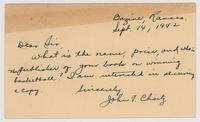 Bazine, Kansas.
Sept. 14, 1942
Dear Sir,
What is the name, price, and the
publisher of your book on winning
basketball? I am interested in securing
a copy.
Sincerely,
John T.